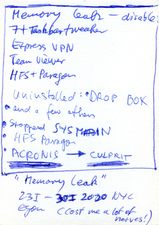 Memory leak – disable:
7+ Taskbar tweaker
Express VPN
Team Viewer
HFS + Paragon
Uninstalled: DROP BOX
and a few others
Stopped SYSMAIN
HFS Paragon
ACRONIS → CULPRIT
"Memory Leak"
23I – 2020 NYC
(Cost me a lot of
nerves!)